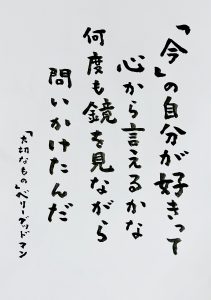 「今」の自分が好きって
心から言えるかな
何度も鏡を見ながら
問いかけたんだ
「大切なもの」ベリーグッドマン